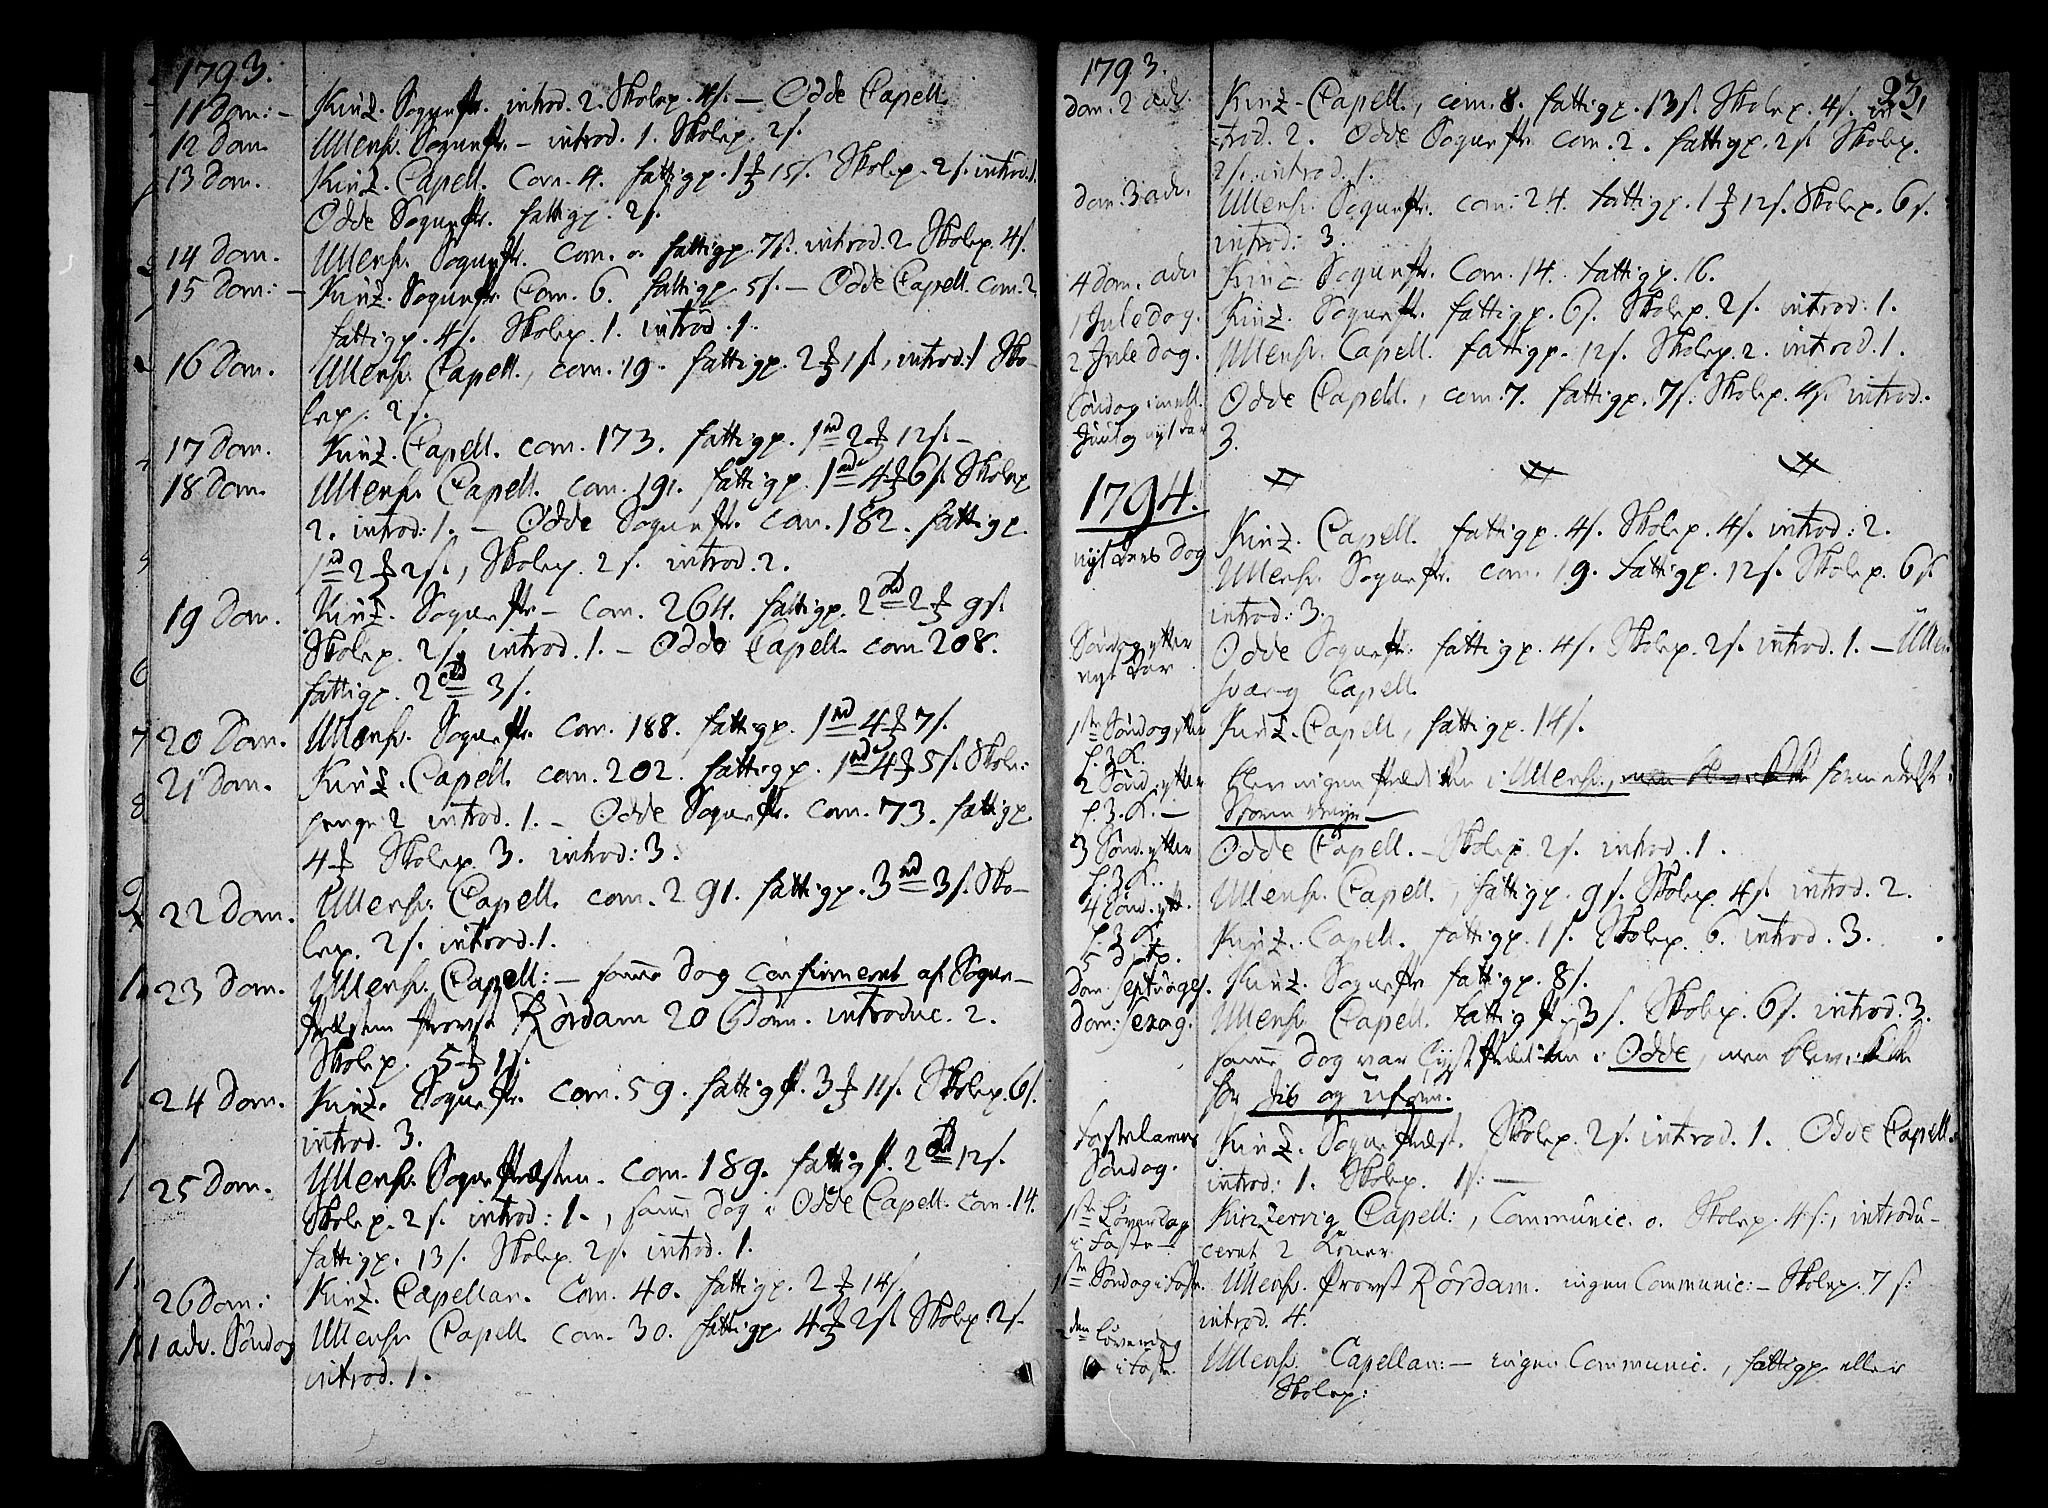 1793.
11 Dom: – Kinz. Sognepr. introd. 2. Skolep. 4 s. – Odde Capell.
12 Dom. Ullensv. Sognepr. – introd. 1. Skolep. 2 s.
13 Dom. Kinz. Capell. Com. 4. fattigp. 1 15 s. Skolep. 2 s. introd. 1.
Odde Sognepr. fattigp. 2 s.
14 Dom. Ullensv. Sognepr. com. 0. fattigp. 7 s. introd. 2. Skolep. 4 s.
15 Dom: – Kinz. Sognepr. Com. 6. fattigp. 5 s. – Odde Capell. com. 2.
fattigp. 4 s. Skolep. 1. introd. 1.
16 Dom. Ullensv. Capell., com. 19. fattigp. 2 1 s., introd: 1 Sko-
lep. 2 s.
17 Dom. Kinz. Capell. com. 173. fattigp. 1 2 12 s. –
18 Dom. Ullensv. Capell. com. 191. fattigp. 1 4 6 s. Skolep
2. introd: 1. – Odde Sognepr. com. 182. fattigp.
1 2 2 s., Skolep. 2 s. introd. 2.
19 Dom. Kinz. Sognepr – com. 264. fattigp. 2 2 9 s.
Skolep. 2 s. introd. 1. – Odde Capell. com 208.
fattigp. 2 3 s.
20 Dom. Ullensv. Sognepr. com. 188. fattigp. 1 4 7 s.
21 Dom. Kinz. Capell. com. 202. fattigp. 1 4 5 s. Skole:
penge 2 introd. 1. – Odde Sognepr. com. 73. fattigp.
4 Skolep. 3. introd: 3.
22 Dom. Ullensv. Capell. com. 291. fattigp. 3 3 s. Sko-
lep. 2 s. introd. 1.
23 Dom. Ullensv. Capell: – samme Dag confirmeret af Sogne-
præsten Provst Rördam 20 Börn. introduc. 2.
Skolep. 5 1 s.
24 Dom. Kinz. Sognepr. com. 59. fattigp. 3 11 s. Skolep. 6 s.
introd. 3.
25 Dom. Ullensv. Sognepræsten. com. 189. fattigp. 2 12 s.
Skolep. 2 s. introd: 1., samme Dag i Odde Capell. com. 14.
fattigp. 13 s. Skolep. 2 s. introd. 1.
26 Dom: Kinz. Capellan. Com. 40. fattigp. 2 14 s.
1 adv. Söndag Ullensv. Capell. com. 30. fattigp. 4 2 s. Skolep. 2 s.
introd. 1.
1793. 23.
dom. 2 adv. Kinz. Capell., com. 8. fattigp. 13 s. Skolep. 4 s. in
trod. 2. Odde Sognepr. com. 2. fattigp. 2 s. Skolep.
2 s. introd. 1.
dom. 3 adv. Ullensv. Sognepr. com. 24. fattigp. 1 12 s. Skolep. 6 s.
introd: 3.
4 dom. adv Kinz Sognepr. Com. 14. fattigp. 16.
1 Juledag. Kinz. Sognepr. fattigp. 6 s. Skolep. 2 s. introd: 1.
2 Juledag. Ullensv. Capell. fattigp. 12 s. Skolep. 2. introd. 1.
Söndag imell. Odde Capell., com. 7. fattigp. 7 s. Skolep. 4 s. introd.
Juul og nyt aar 3.
1794.
nyt Aars Dag Kinz. Capell. fattigp. 4 s. Skolep. 4 s. introd: 2.
Ullensv. Sognepr. com. 19. fattigp. 12 s. Skolep. 6 s.
introd: 3.
Söndag efter nyt Aar Odde Sognepr. fattigp. 4 s. Skolep. 2 s. introd. 1. – Ullen
svang Capell.
1ste Söndag efter h. 3 K. Kinz. Capell, fattigp. 14 s.
2 Sönd. efter h. 3. K. – blev ingen Prædiken i Ullensv., formedelst
Storm
3 Sönd. efter h. 3 K. Odde Capell. – Skolep. 2 s. introd. 1.
4 Sönd. eft. h. 3 K. Ullensv. Capell., fattigp. 9 s. Skolep. 4 s. introd. 2.
5 Kinz. Capell. fattigp. 1 s. Skolep. 6. introd. 3.
Dom. septuages. Kinz. Sognepr fattigp. 8 s.
Dom: sexag. Ullensv. Capell. fattigp. 3 s. Skolep. 6 s. introd. 3.
samme Dag var lyst Prædiken i Odde, men blev ikke
for Jis og Ufore.
Fastelavns Söndag. Kinz. Sognepræst. Skolep. 2 s. introd. 1. Odde Capell.
introd: 1. Skolep. 1 s: –
1ste Löverdag i Faste – Kinzervig Capell:, Communic. 0. Skolep. 4 s:, introdu-
ceret 2 Koner.
1ste Söndag i Fast. Ullensv. Provst Rördam. ingen Communic: – Skolep. 7 s:
introd. 4.
2den Löverdag i Fast. Ullensv. Capellan: – ingen Communic., fattigp eller
Skolep: